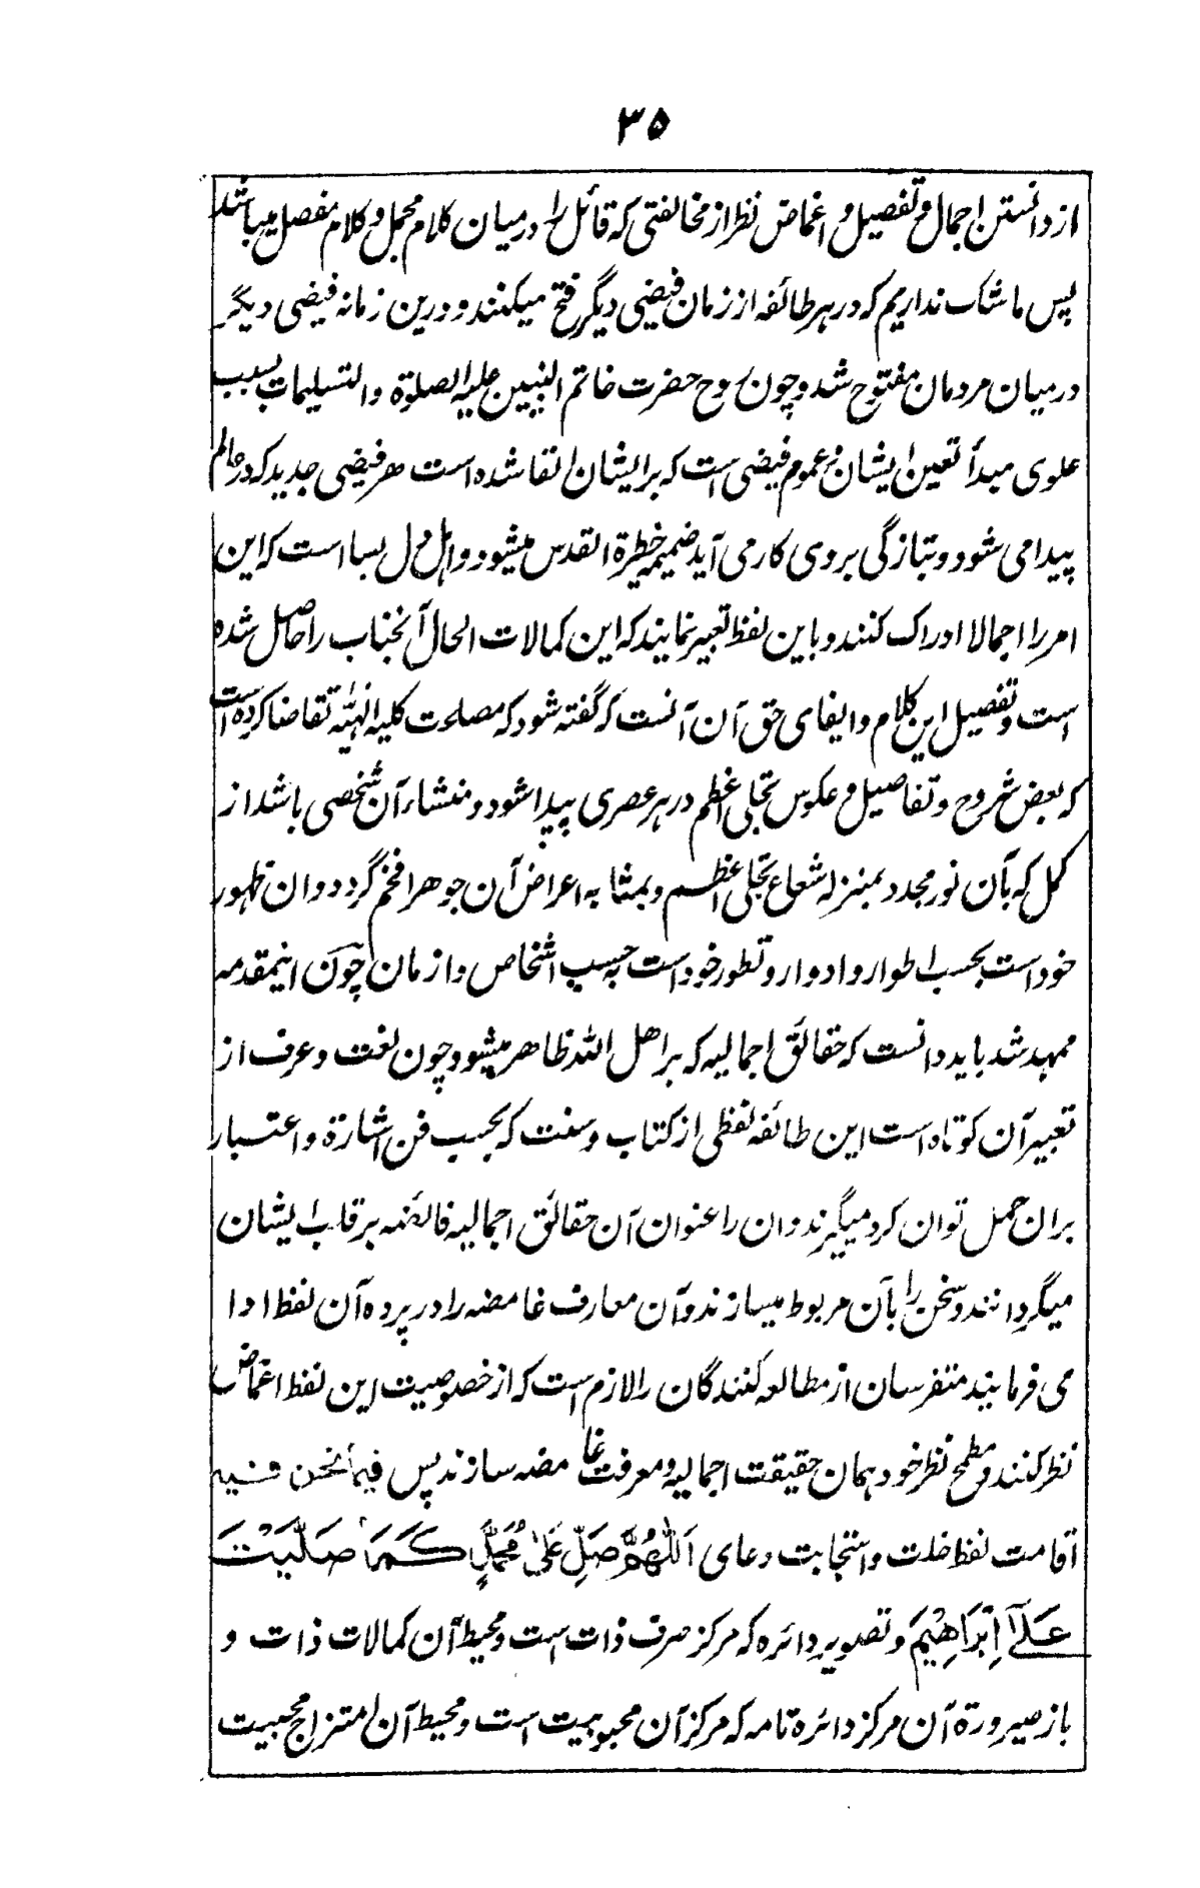 ۳۵
از دانستن اجمال و تفصیل و اغماض نظر از مخالفتی که قائل را درمیان کلام مجمل و کلام مفصل میباشد
پس ما شک نداریم که در هر طائفه از زمان فیضی دیگر فتح میکنند و درین زمانه فیضی دیگر
درمیان مردمان مفتوح شد و چون روح حضرت خاتم النبیین علیه الصلوة والتسلیمات بسبب
علوی مبدأ تعین ایشان و عموم فیضی است که بر ایشان القا شده است هر فیضی جدید که در عالم
پیدا می شود و بتازگی بروی کار می آید ضمیمه خطیرة القدس میشود و اهل دل بسا است که این
امر را اجمالا ادراک کنند و باین لفظ تعبیر نمایند که این کمالات الحال آنجناب را حاصل شده
است و تفصیل این کلام و ایفای حق آن آنست که گفته شود که مصلحت کلیه الهیه تقاضا کرده است
که بعض شروح و تفاصیل و عکوس تجلی اعظم در هر عصری پیدا شود و منشاء آن شخصی باشد از
کمل که بآن نور مجدد بمنزله شعاع تجلی اعظم و بمثابه اعراض آن جوهر افخم گردد و ان ظهور
خود است بحسب اطوار و ادوار و تطور خود است به حسب اشخاص و ازمان چون اینمقدمه
ممهد شد باید دانست که حقائق اجمالیه که بر اهل الله ظاهر میشود چون لغت و عرف از
تعبیر آن کوتاه است این طائفه لفظی از کتاب و سنت که بحسب فن اشارة و اعتبار
بران حمل توان کرد میگیرند و ان را عنوان آن حقائق اجمالیه فائضه بر قلب ایشان
میگردانند و سخن را بآن مربوط میسازند و آن معارف غامضه را در پرده آن لفظ ادا
می فرمایند متفرسان از مطالعه کنندگان را لازم است که از خصوصیت این لفظ اغماض
نظر کنند و مطمح نظر خود همان حقیقت اجمالیه و معرفت غامضه سازند پس فیما نحن فیه
اقامت لفظ خلت و استجابت دعای اَللّٰهُمَّ صَلِّ عَلٰی مُحَمَّدٍ کَمَا صَلَّیْتَ
عَلٰۤی اِبْرَاهِیْمَ و تصویر دائره که مرکز صرف ذات است و محیط آن کمالات ذات و
باز صیرورة آن مرکز دائره تامه که مرکز آن محبوبیت است و محیط آن امتزاج محبیت